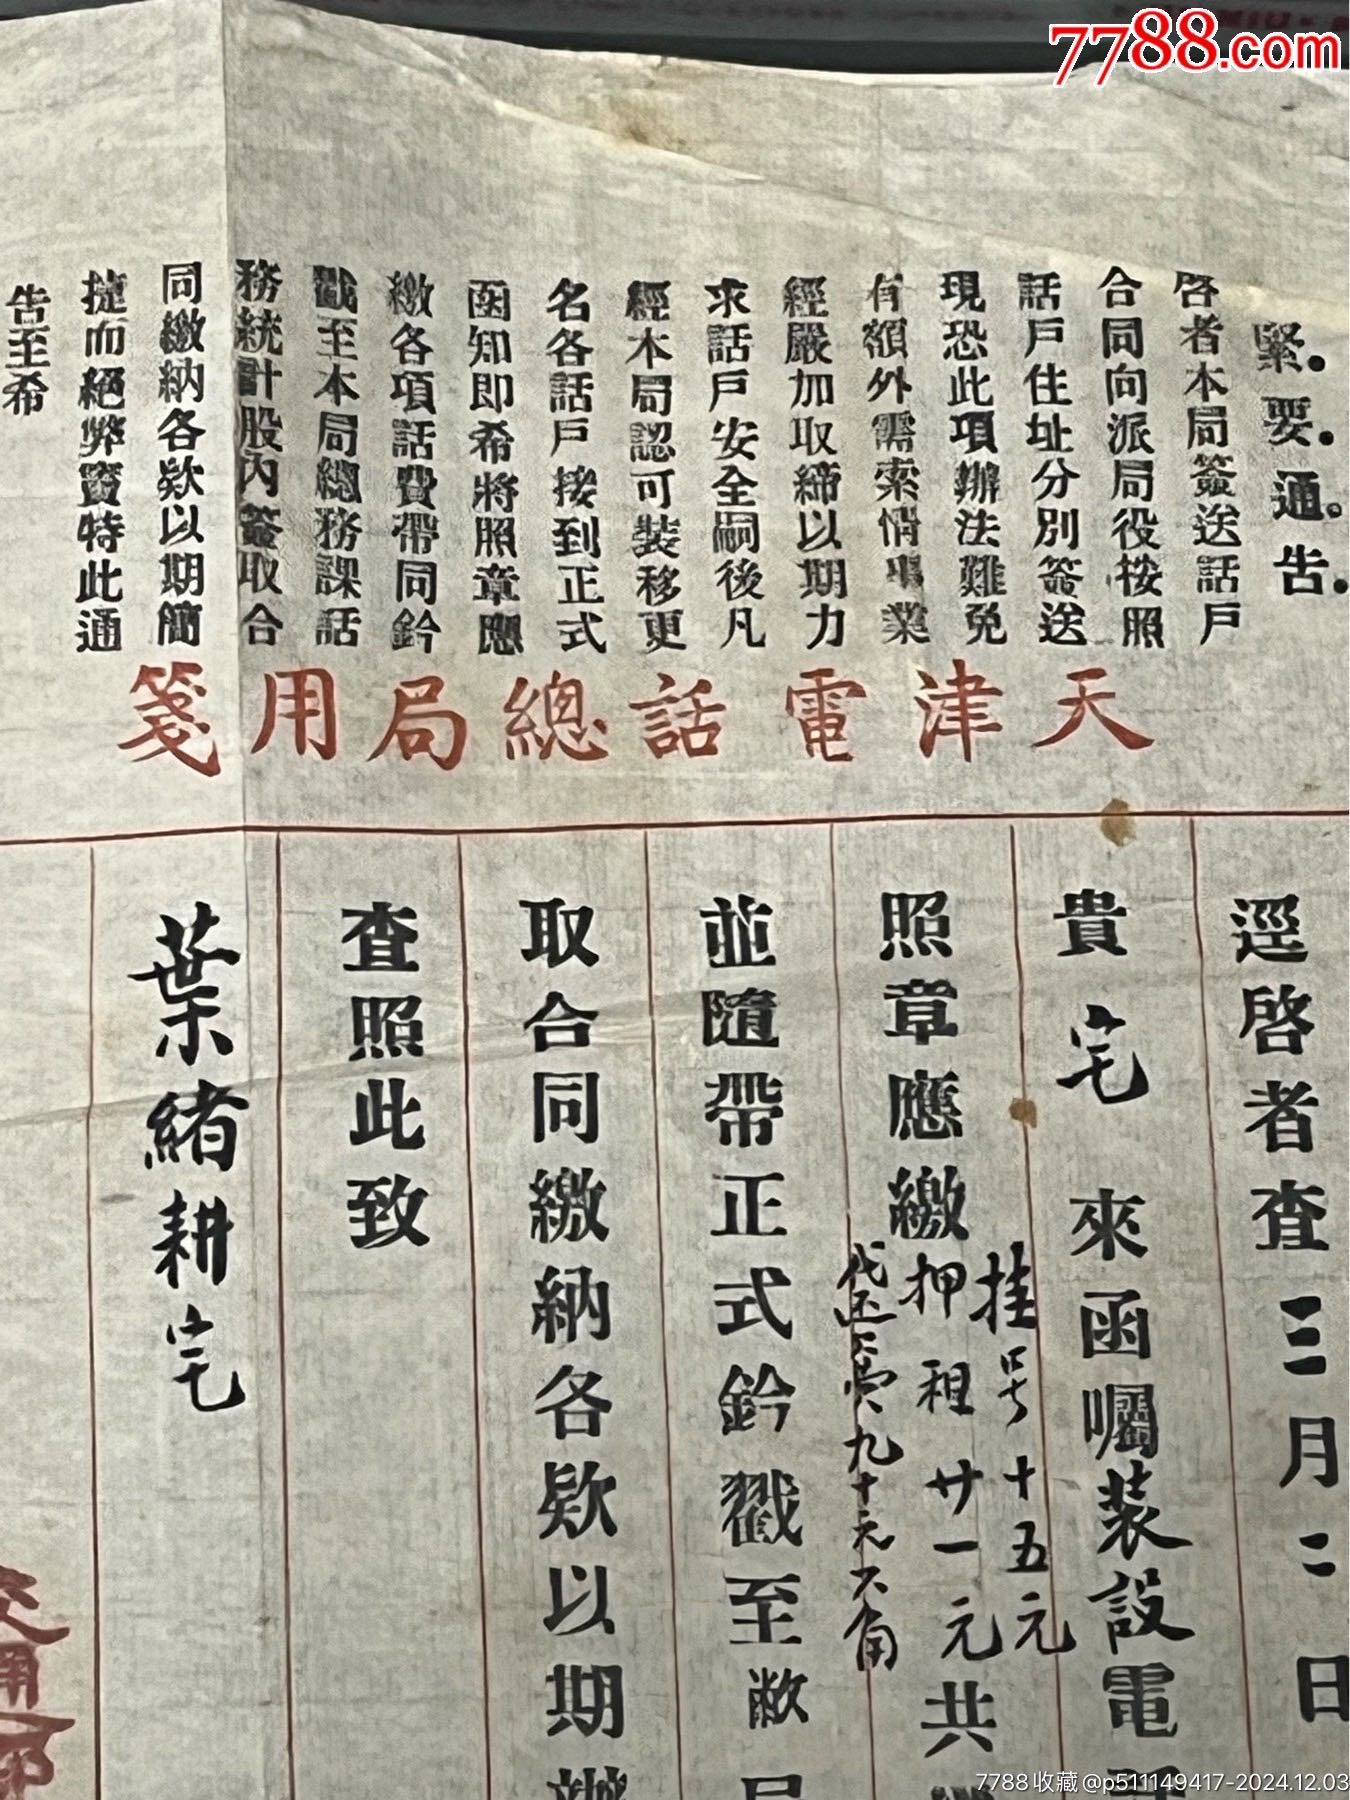 7788.com
緊要通告
啓者本局簽送話戶
合同向派局役按照
話戶住址分別簽送
現恐此項辦法難免
有額外需索情事業
經嚴加取締以期力
求話戶安全嗣後凡
經本局認可裝移更
名各話戶接到正式
函知即希將照章應
繳各項話費帶同鈐
戳至本局總務課話
務統計股內簽取合
同繳納各欵以期簡
捷而絕弊竇特此通
告至希
天津電話總局用箋
逕啓者查三月二日
貴宅來函囑裝設電
照章應繳
挂号十五元
押租廿一元
費九十元六角
共
並隨帶正式鈐戳至敝
取合同繳納各欵以期
查照此致
葉緒耕宅
交通部
7788收藏@p511149417-2024.12.03